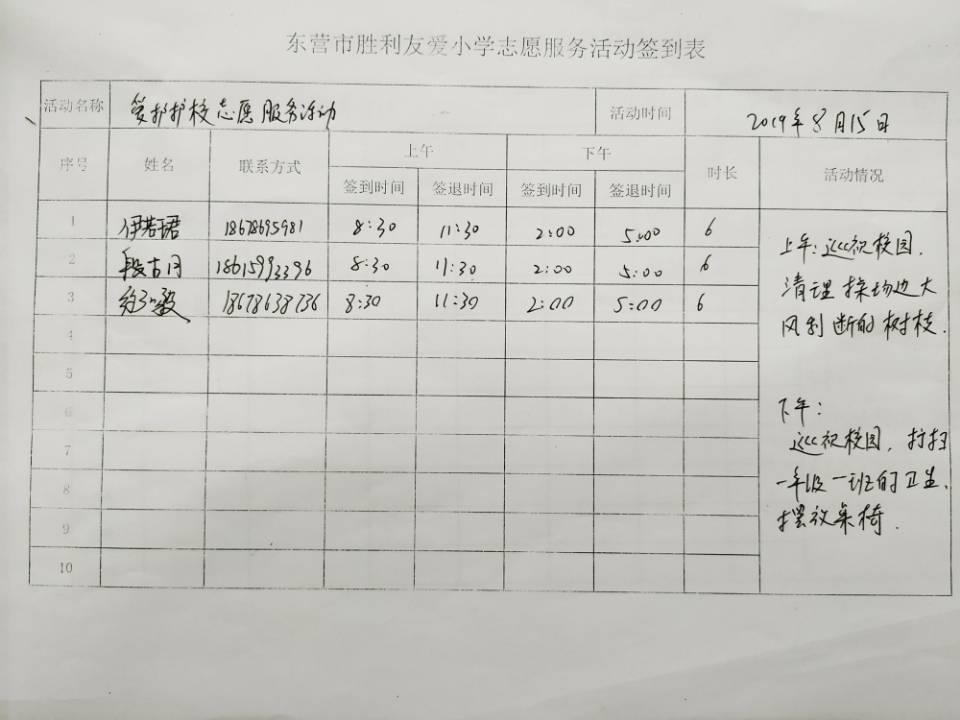 东营市胜利友爱小学志愿服务活动签到表
活动名称 爱护护校志愿服务活动 活动时间 2019年8月15日
序号 姓名 联系方式 上午 下午 时长 活动情况
签到时间 签退时间 签到时间 签退时间
1 伊若珺 18678695981 8:30 11:30 2:00 5:00 6
2 段古月 18615993396 8:30 11:30 2:00 5:00 6
3 18678638736 8:30 11:30 2:00 5:00 6
4
5
6
7
8
9
10
上午:巡视校园.
清理操场边大
风刮断的树枝.
下午:
巡视校园,打扫
一年级一班的卫生,
摆放桌椅.